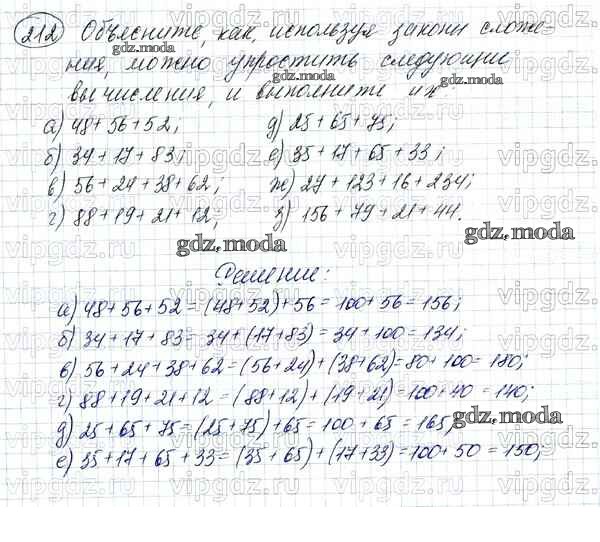 212 Объясните, как, используя законы сложе-
ния, можно упростить следующие
вычисления, и выполните их
а) 48+56+52; д) 25+65+75;
б) 34+17+83; е) 35+17+65+33;
в) 56+24+38+62; ж) 27+123+16+234;
г) 88+19+21+12, з) 156+79+21+44.
Решение:
а) 48+56+52=(48+52)+56=100+56=156;
б) 34+17+83=34+(17+83)=34+100=134;
в) 56+24+38+62=(56+24)+(38+62)=80+100=180;
г) 88+19+21+12=(88+12)+(19+21)=100+40=140;
д) 25+65+75=(25+75)+65=100+65=165;
е) 35+17+65+33=(35+65)+(17+33)=100+50=150;
gdz.moda
vipgdz.ru